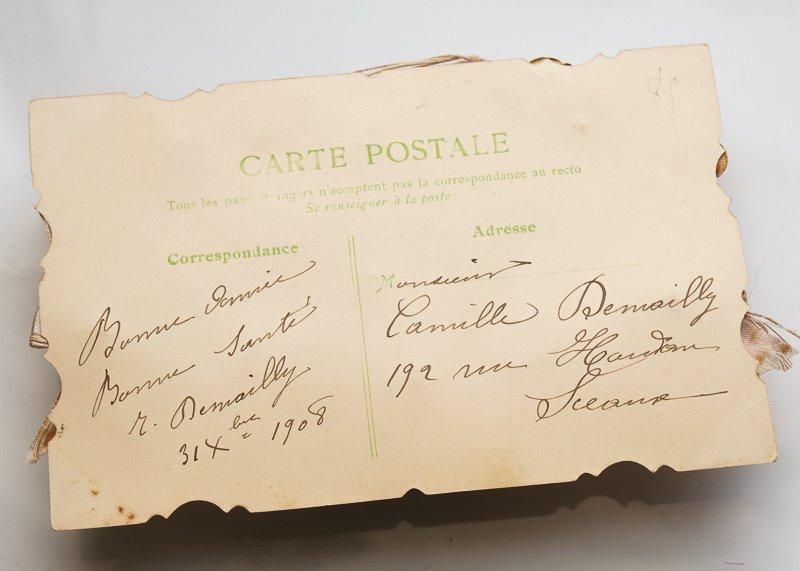 85
CARTE POSTALE
Tous les pays étrangers n'acceptent pas la correspondance au recto
Se renseigner à la poste
Correspondance
Adresse
Bonne année
Bonne Santé
r. Demailly
31 Xbre 1908
Monsieur
Camille Demailly
192 rue Houdan
Sceaux